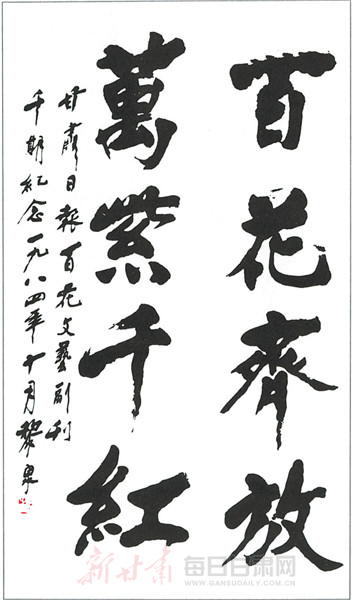 百花齊放
萬紫千紅
甘肅日報百花文藝副刊
千期紀念一九八四年十月黎泉
新甘肃 每日甘肃网
WWW.GANSUDAILY.COM.CN